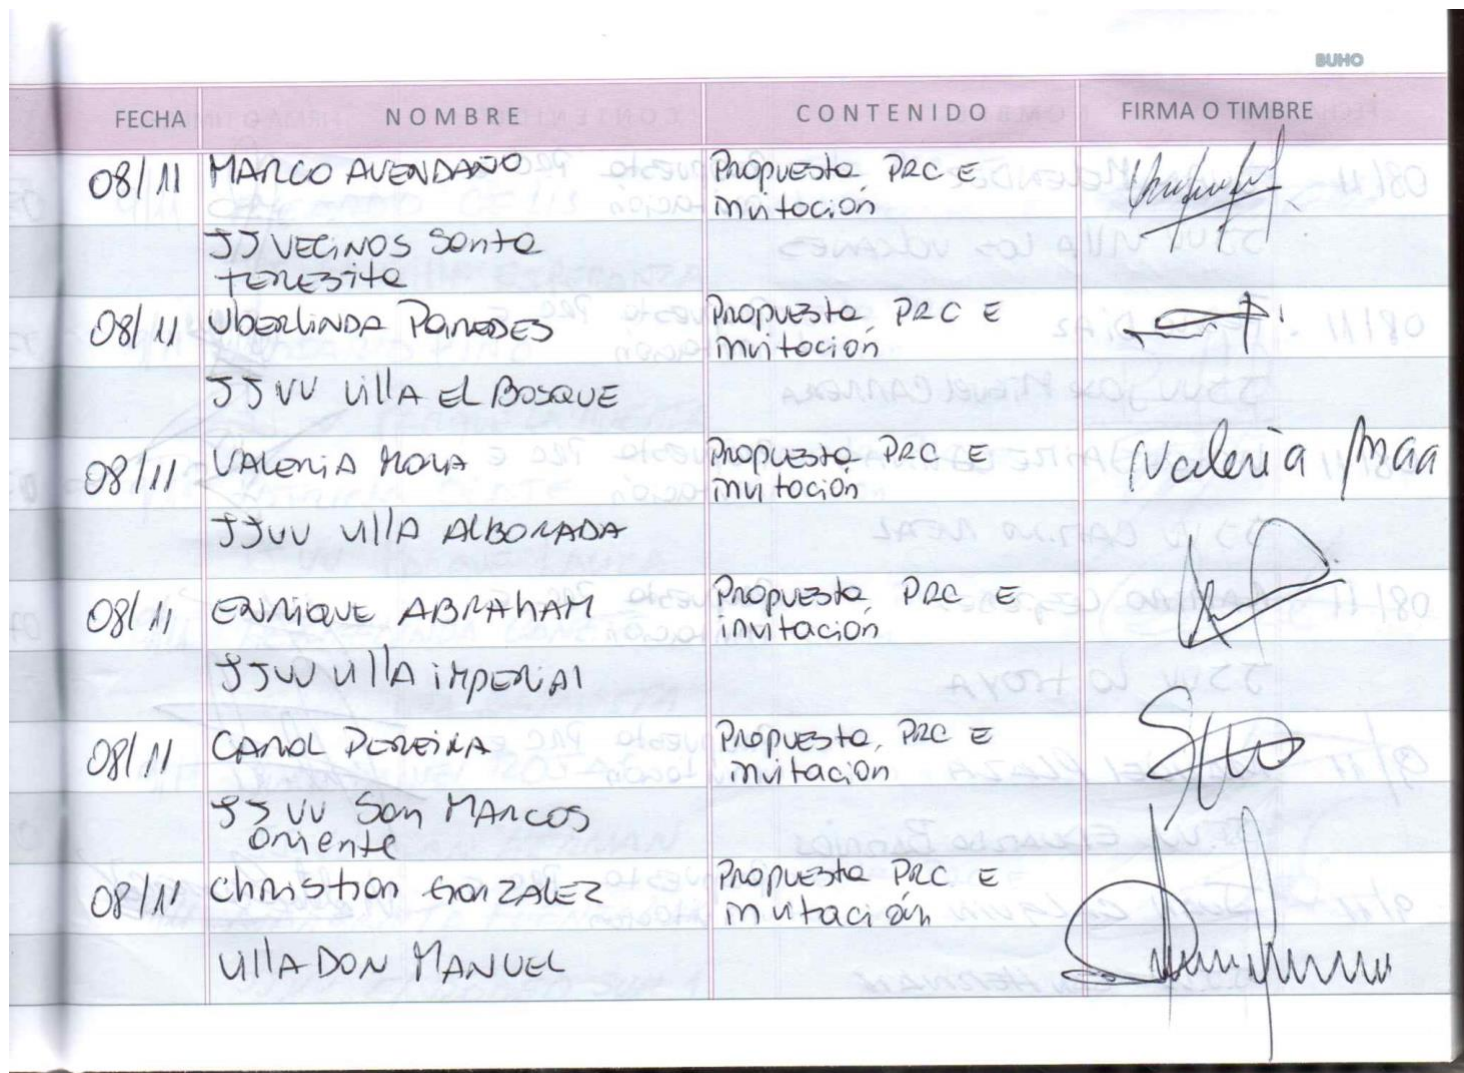 BUHO
FECHA NOMBRE CONTENIDO FIRMA O TIMBRE
08/11 MARCO AVENDAÑO Propuesta PRC E
invitación
JJ VECINOS Santa
TERESITA
08/11 UBERLINDA PAREDES Propuesta, PRC E
invitación
JJ VV VILLA EL BOSQUE
08/11 VALERIA MOYA Propuesta PRC E
invitación
Valeria
JJVV VILLA ALBORADA
08/11 ENRIQUE ABRAHAM Propuesta, PRC E
invitación
JJVV VILLA IMPERIAL
08/11 CAROL PEREIRA Propuesta, PRC E
invitación
JJ VV San MARCOS
Oriente
08/11 Christian GONZALEZ Propuesta PRC E
invitación
VILLA DON MANUEL